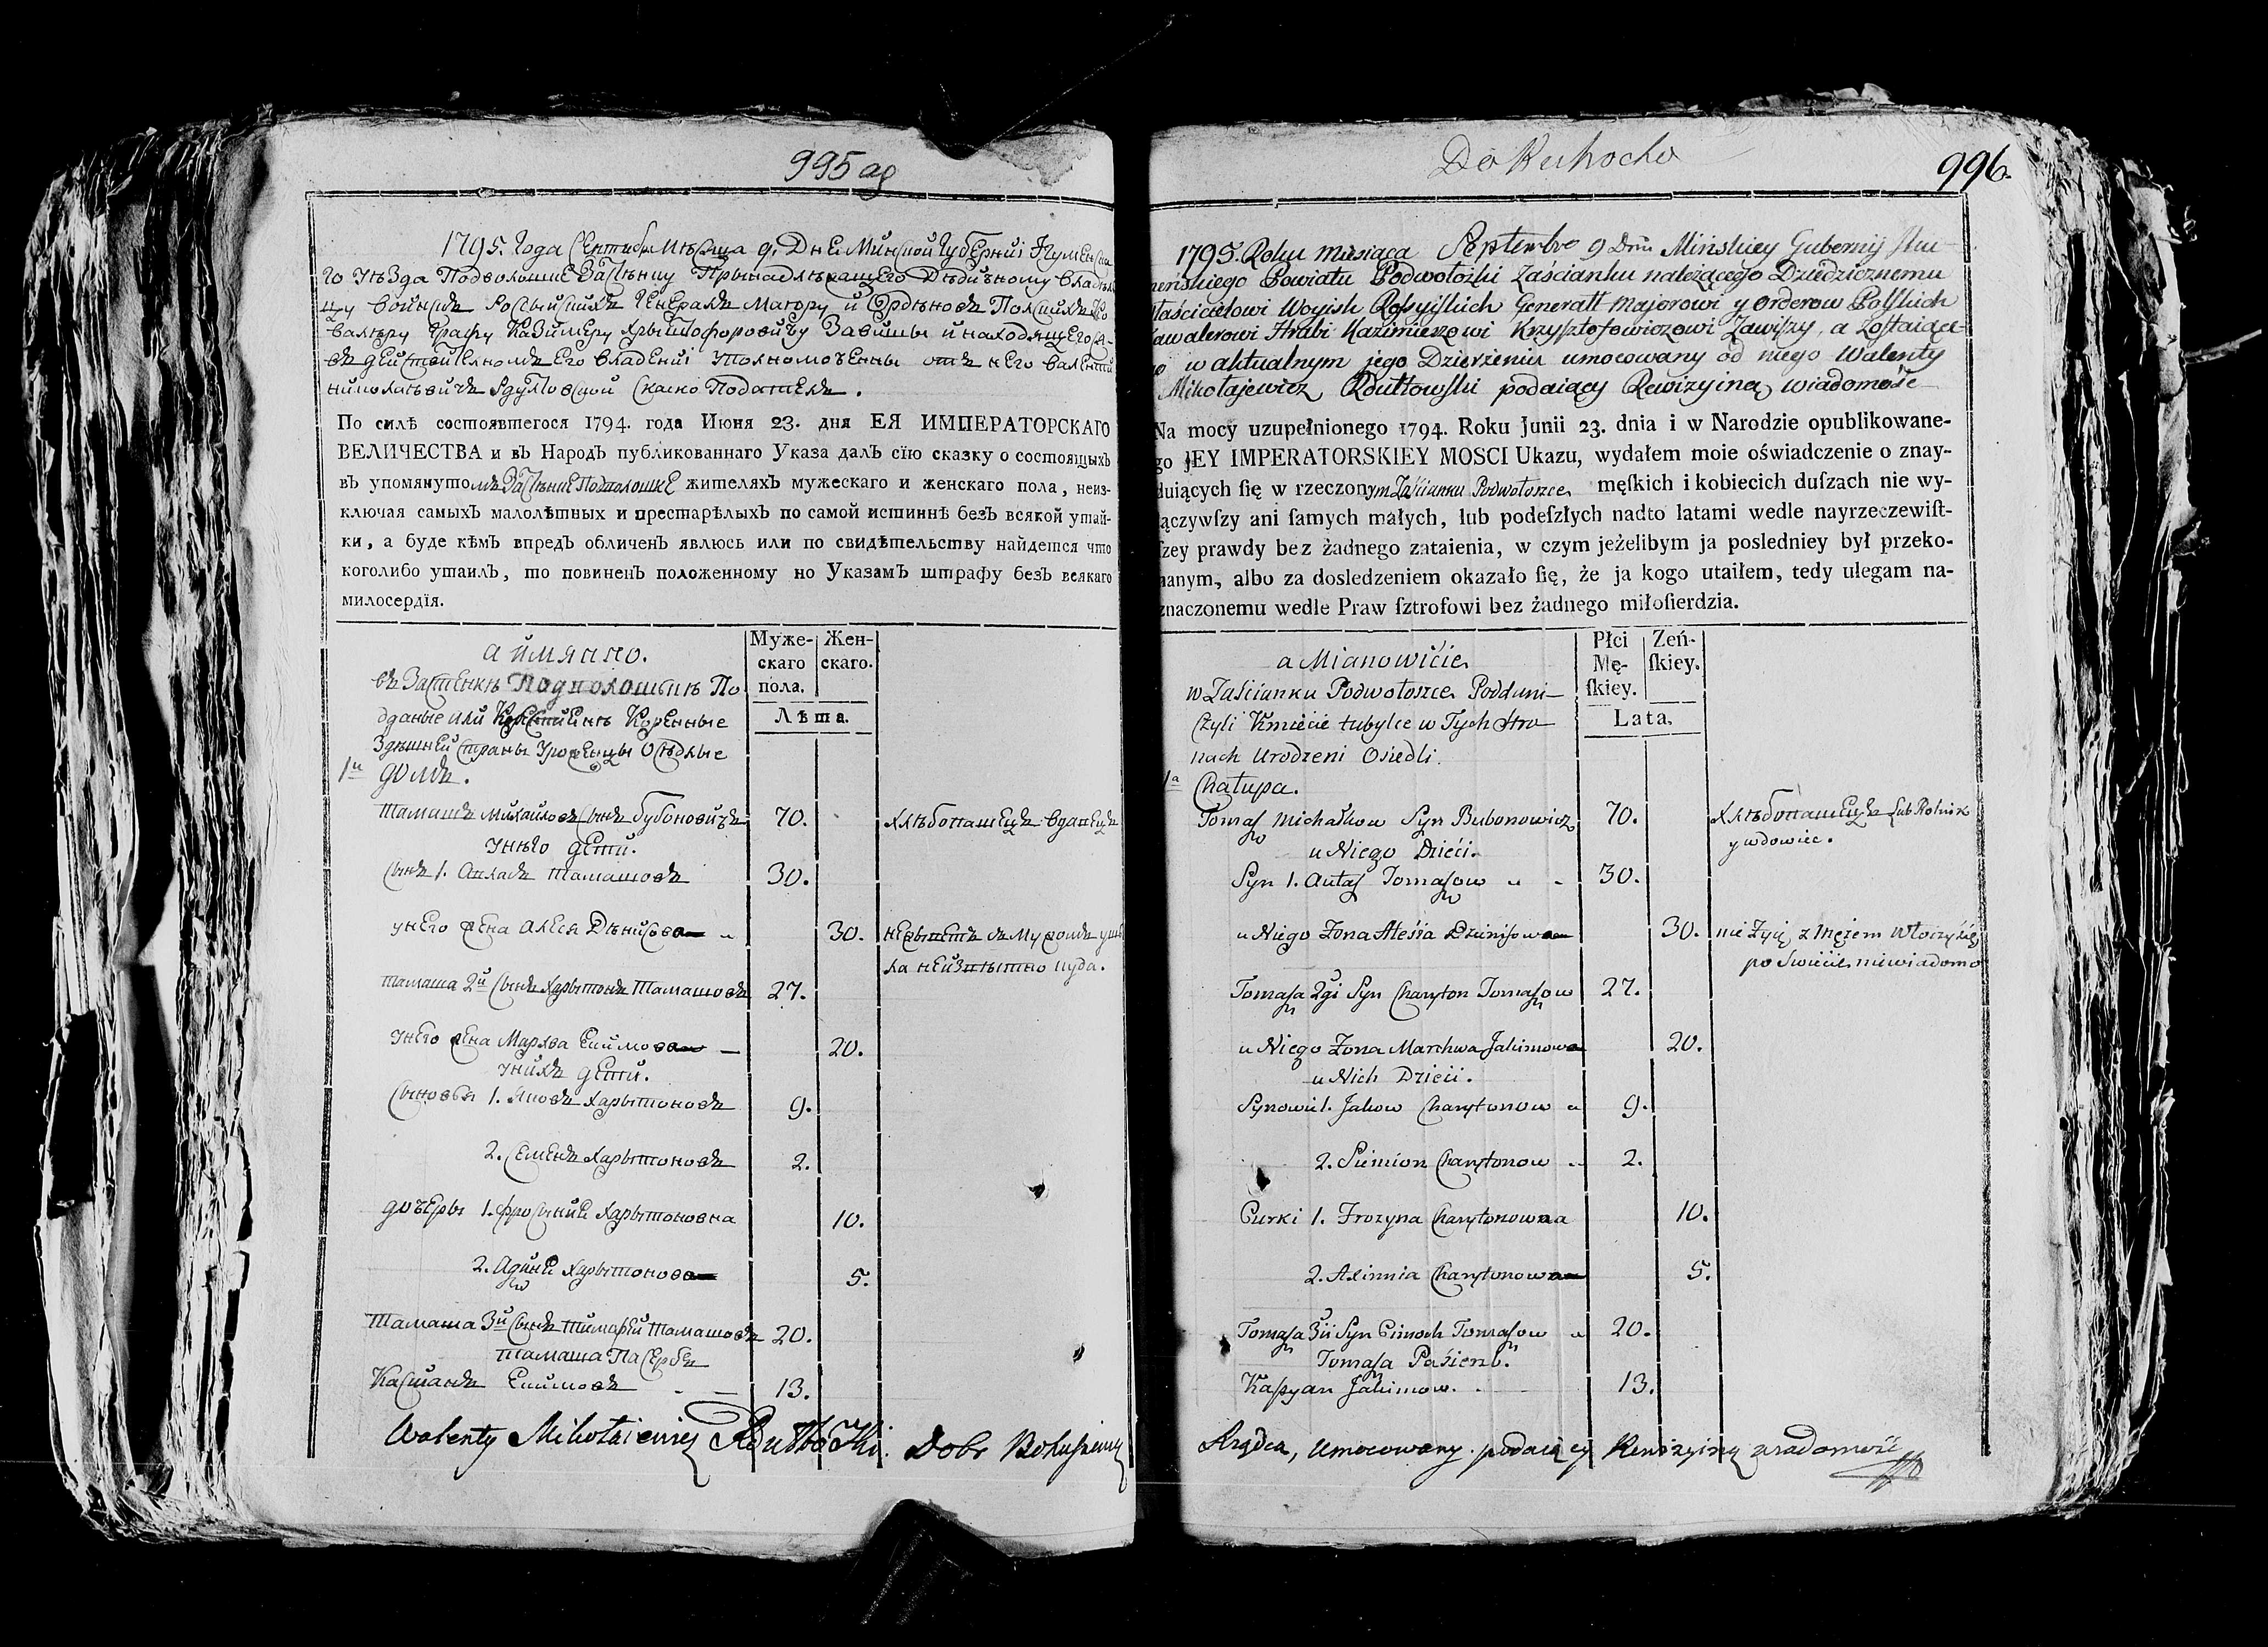 995 об
1795. Года Сентября Месяца 9. Дне Минской Губернiи Игуменска
го Уѣзда Подволошке Застѣнку Прынадлѣжащего Дѣдичному владѣл
цу войскъ Россыйскихъ Генералъ Маiору и Ордѣновъ Полскихъ Ко
валѣру Графу Казимеру Хрыштофоровичу Завишы и находящегося
въ действителномъ Его владенiи уполномоченны отъ него валентий
николаевичъ Рдултовский Скаско Подателъ.
По силѣ состоявшегося 1794. года Июня 23. дня ЕЯ ИМПЕРАТОРСКАГО
ВЕЛИЧЕСТВА и въ Народъ публикованнаго Указа далъ сїю сказку о состоящыхъ
въ упомянутомъ Застѣнке Подволошке жителяхъ мужескаго и женскаго пола, неиз-
ключая самыхъ малолѣтных и престарѣлыхъ по самой истиннѣ безъ всякой утай-
ки, а буде кѣмъ впредъ обличенъ явлюсь или по свидѣтельству найдется что
коголибо утаилъ, то повиненъ положенному по Указамъ штрафу безъ всякаго
милосердїя.
а имянно.
Муже-
скаго
пола.
Жен-
скаго.
Лѣта.
въ Застенкѣ Подволошкѣ По
дданые или Крестиянѣ Коренные
Здѣшней страны Уроженцы Осѣдлые
1й домъ.
Тамашъ Михайловъ сынъ Бубоновичъ 70. хлѣбопашецъ вдавецъ
У него дети.
Сынъ 1. Ауласъ Тамашовъ 30.
у него жена Алеся Дѣнисова 30. нежыветъ съ мужомъ ушѣ
ла неизвѣстно куда.
Тамаша 2й Сынъ Харытонъ Тамашовъ 27.
У него жена Мархва Екимова 20.
у нихъ дети.
Сыновья 1. Яковъ Харытоновъ 9.
2. Семенъ Харытоновъ 2.
дочеры 1. Фросиния Харытоновна 10.
2. Харытонова 5.
Тамаша 3й Сынъ Тимофей Тамашовъ 20.
Тамаша Пасербъ
Касиянъ Екимовъ 13.
Walenty Mikołaiewicz Rdułtowski. Dobr
996.
1795. Roku miesiąca Septembra 9 Dnia Mińskiey Gubernij Ihu-
meńskiego Powiatu Podwołożki Zaścianku należącego Dziedzicznemu
Właścicielowi Woysk Rossyiskich Generałł Majorowi y Orderow Polskich
Kawalerowi Hrabi Kazimierzowi Krzysztofowiczowi Zawiszy, a zostaiące-
go w aktualnym jego Dzierżeniu umocowany od niego Walenty
Mikołajewicz Rdułtowski podaiący Rewizyiną wiadomość
Na mocy uzupełnionego 1794. Roku Junii 23. dnia i w Narodzie opublikowane-
go JEY IMPERATORSKIEY MOSCI Ukazu, wydałem moie oświadczenie o znay-
duiących ſię w rzeczonym Zaścianku Podwołoszce męſkich i kobiecich duſzach nie wy-
łączywſzy ani ſamych małych, lub podeſzłych nadto latami wedle nayrzeczewiſt-
ſzey prawdy bez żadnego zataienia, w czym jeżelibym ja posledniey był przeko-
nanym, albo za dosledzeniem okazało ſię, że ja kogo utaiłem, tedy ulegam na-
znaczonemu wedle Praw ſztrofowi bez żadnego miłoſierdzia.
a Mianowicie
Płci
Mę-
ſkiey.
Zeń-
ſkiey.
Lata.
w Zaścianku Podwołoszce Poddani
czyli Kmiecie tubylce w Tych Stro
nach Urodzeni Osiedli.
1a Chałupa.
Tomasz Michałkow Syn Bubonowicz 70. хлѣбопашецъ lub Rolnik
y wdowiec.
u Niego Dzieci.
Syn 1. Autas Tomaszow 30.
u Niego Żona Alesia Dzienisowa 30. nie żyie z Mężem Włoczy się
po świecie niewiadomo
Tomasza 2gi Syn Charyton Tomaszow 27.
u Niego Żona Marchwa Jakimowa 20.
u Nich Dzieci.
Synowie 1. Jakow Charytonow 9.
2. Siemion Charytonow 2.
Curki 1. Frozyna Charytonowna 10.
2. Axinnia Charytonowa 5.
Tomasza 3ii Syn Cimoch Tomaszow 20.
Tomasza Pasierb.
Kasyan Jakimow. 13.
Rządca, Umocowany podaiący Rewizyiną wiadomość